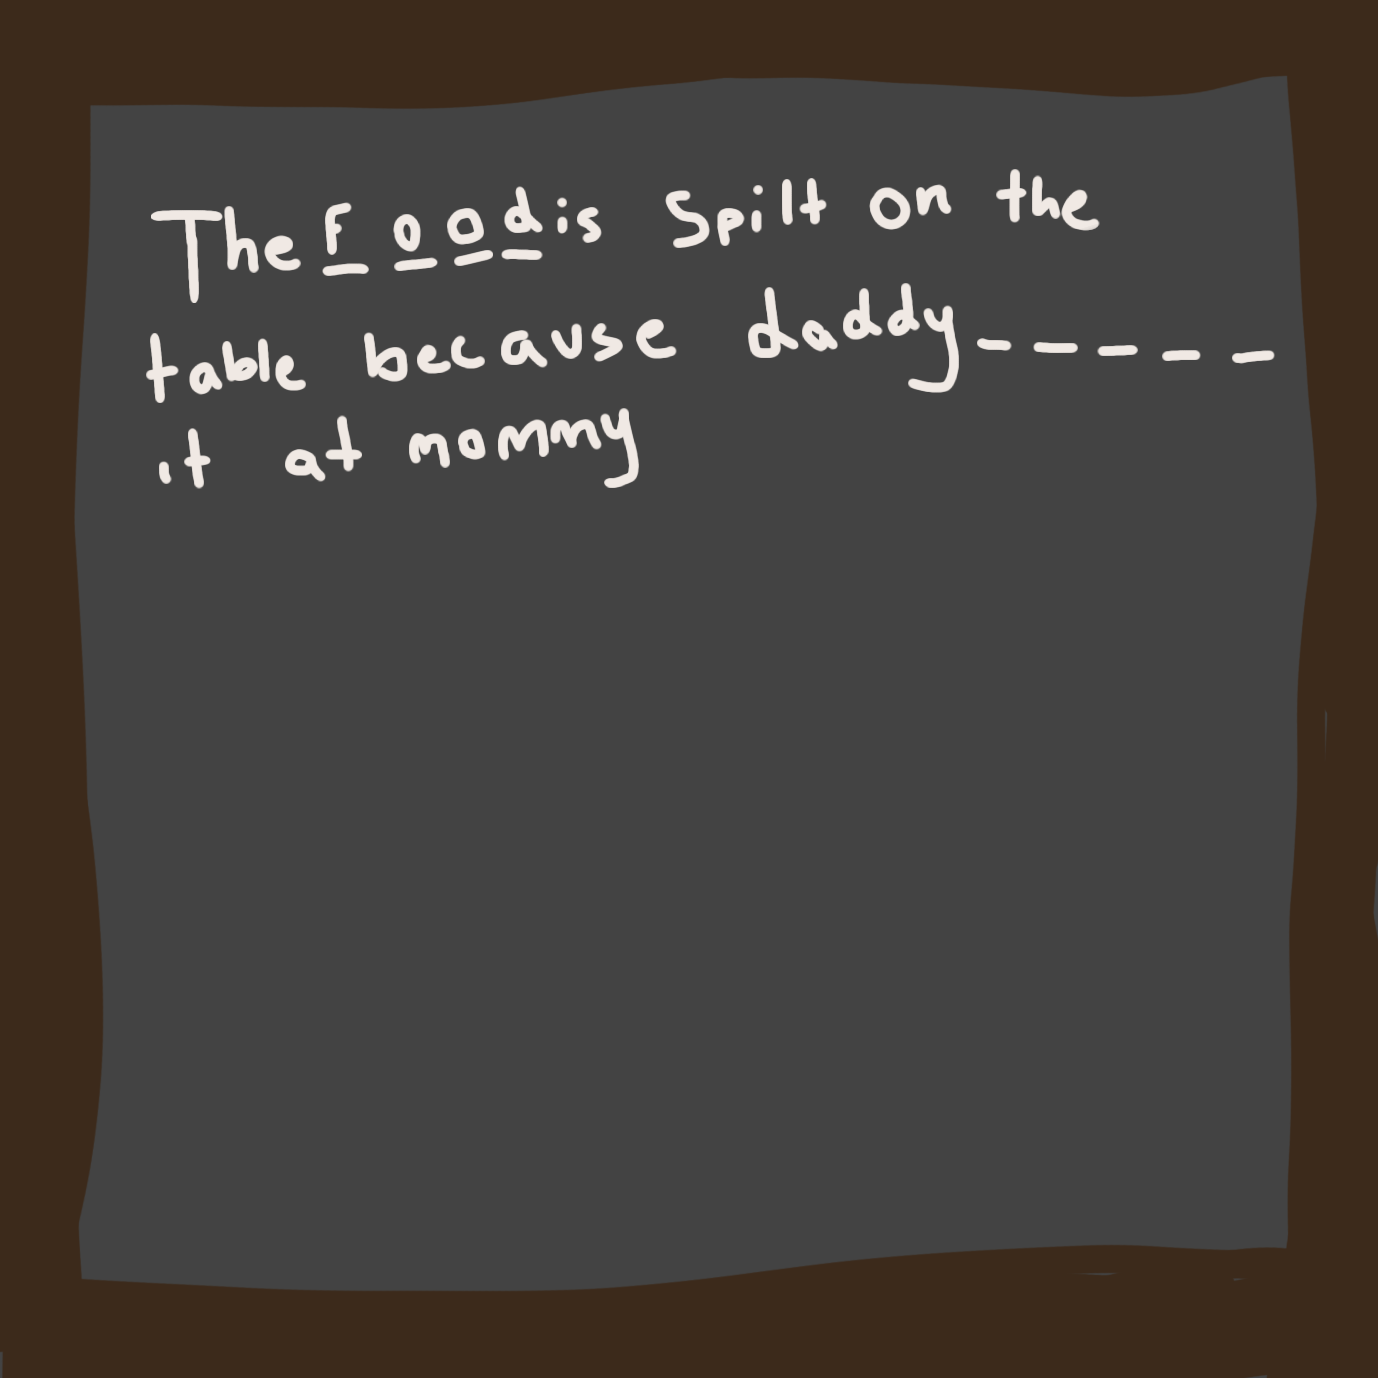 The Food is Spilt on the
table because daddy _ _ _ _ _
it at mommy